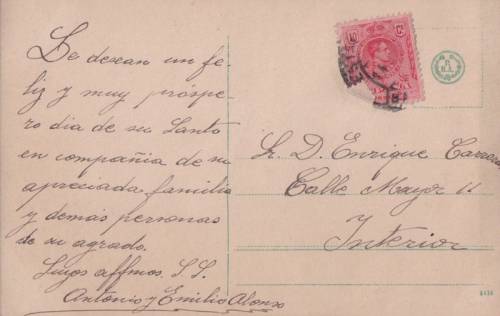 Le desean un fe-
liz y muy próspe-
ro dia de su Santo
en compañia de su
apreciada familia
y demás personas
de su agrado.
Suyos affmos. S.S.
Antonio y Emilio Alonso
10 Cs
Sr. D. Enrique Carrera
Calle Mayor 11
Interior